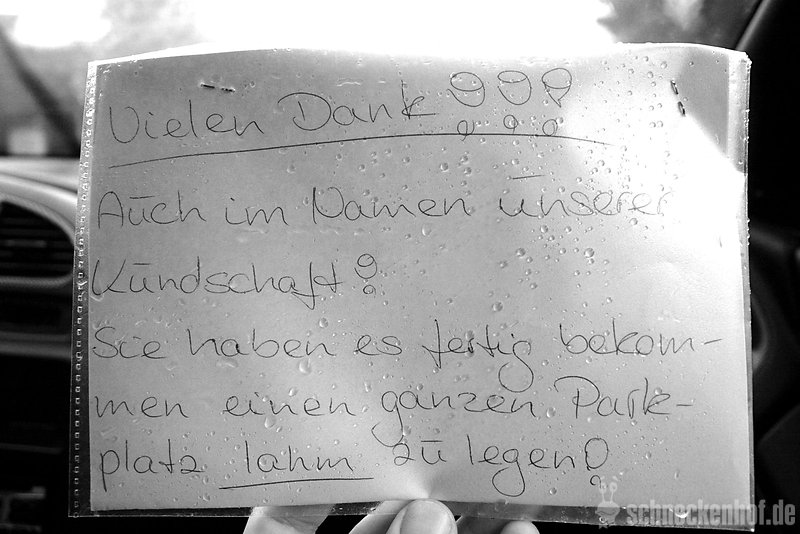 Vielen Dank !!!
Auch im Namen unserer
Kundschaft!
Sie haben es fertig bekom-
men einen ganzen Park-
platz lahm zu legen!
schneckenhof.de